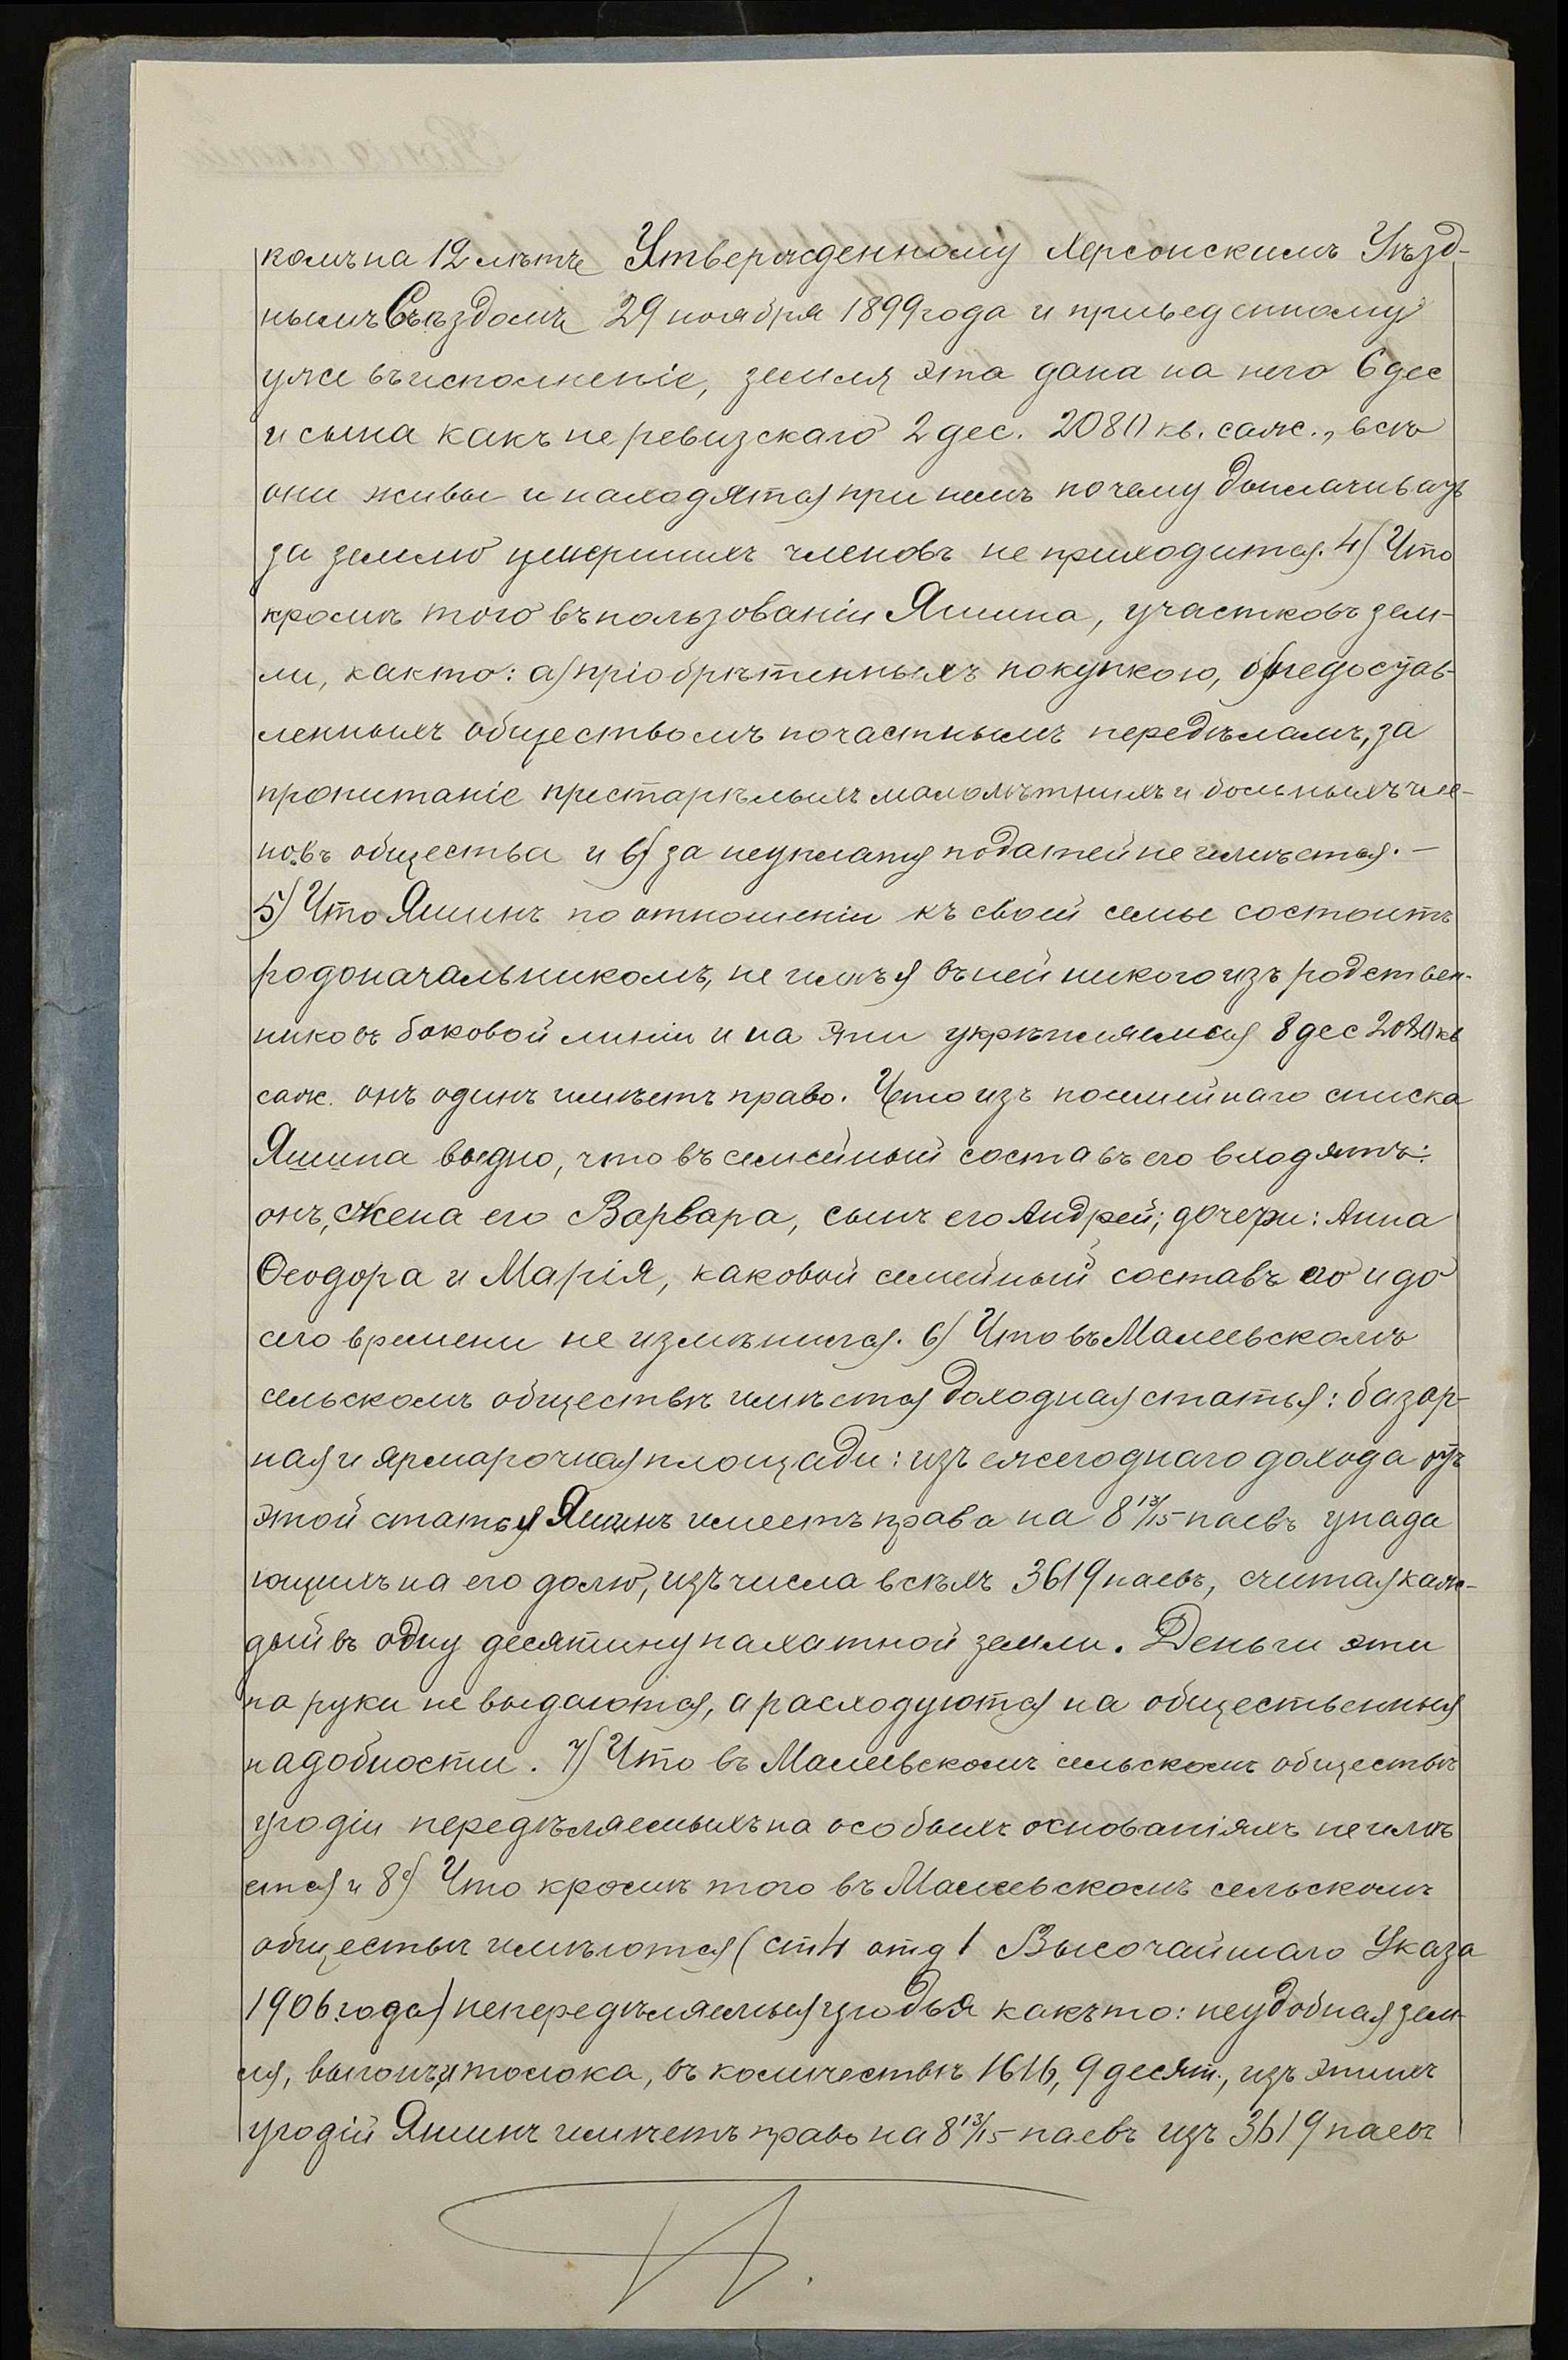 комъ на 12 лѣтъ Утвержденному Херсонскимъ Уѣзд-
нымъ Съѣздомъ 29 ноября 1899 года и приведенному
уже въ исполненіе, земля эта дана на него 6 дес
и сына какъ не ревизскаго 2 дес. 2080 кв. саж., всѣ
они живы и находятся при немъ почему доплачивать
за землю умершихъ членовъ не приходится. 4) Что
кромѣ того въ пользованіи Яшина, участковъ зем-
ли, както: а) пріобрѣтенныхъ покупкою, б) предостав-
ленныхъ обществомъ по частнымъ передѣламъ, за
пропитаніе престарѣлыхъ малолѣтнихъ и больныхъ чле-
новъ общества и в) за неуплату податей не имѣется. —
5) Что Яшинъ по отношеніи къ своей семье состоитъ
родоначальникомъ, не имѣя въ ней никого изъ родствен-
никовъ боковой линіи и на эти укрѣпляемыя 8 дес 2080 кв
саж. онъ одинъ имѣетъ право. Что изъ посемейнаго списка
Яшина видно, что въ семейный составъ его входятъ:
онъ, жена его Варвара, сынъ его Андрей; дочери: Анна
Ѳеодора и Марія, каковой семейный составъ его и до
сего времени не измѣнился. 6) Что въ Малеевскомъ
сельскомъ обществѣ имѣется доходная статья: базар-
ная и ярмарочная площади: изъ ежегоднаго дохода отъ
этой статьи Яшинъ имеетъ права на 8 13/15 паевъ упада
ющихъ на его долю, изъ числа всѣхъ 3619 паевъ, считая каж-
дый въ одну десятину пахатной земли. Деньги эти
на руки не выдаются, а расходуются на общественныя
надобности. 7) Что въ Малеевскомъ сельскомъ обществѣ
угодіи передѣляемыхъ на особыхъ основаніяхъ не имѣ
ется и 8) Что кромѣ того въ Малеевскомъ сельскомъ
обществѣ имѣются (ст 4 отд 1 Высочайшаго Указа
1906 года) непередѣляемыя угодья какъ то: неудобная зем-
ля, выгонъ и толока, въ количествѣ 1616,9 десят., изъ этихъ
угодій Яшинъ имѣетъ право на 8 13/15 паевъ изъ 3619 паевъ